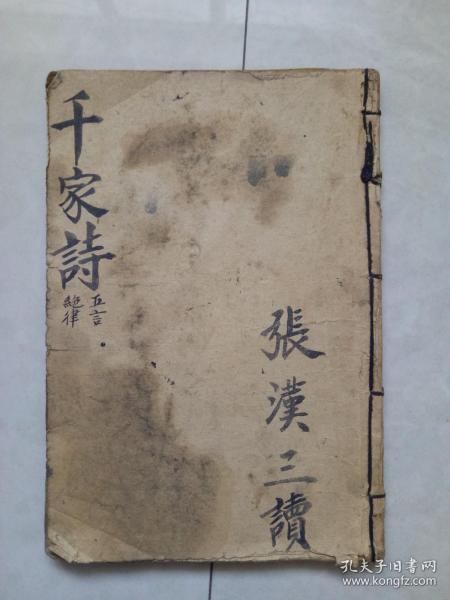 千家詩
五言
絕律
張漢三讀
孔夫子旧书网
www.kongfz.com